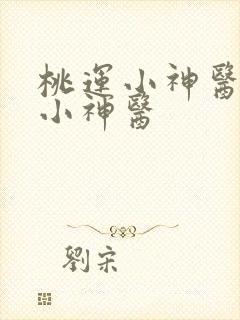 桃運小神醫
小神醫
劉宋